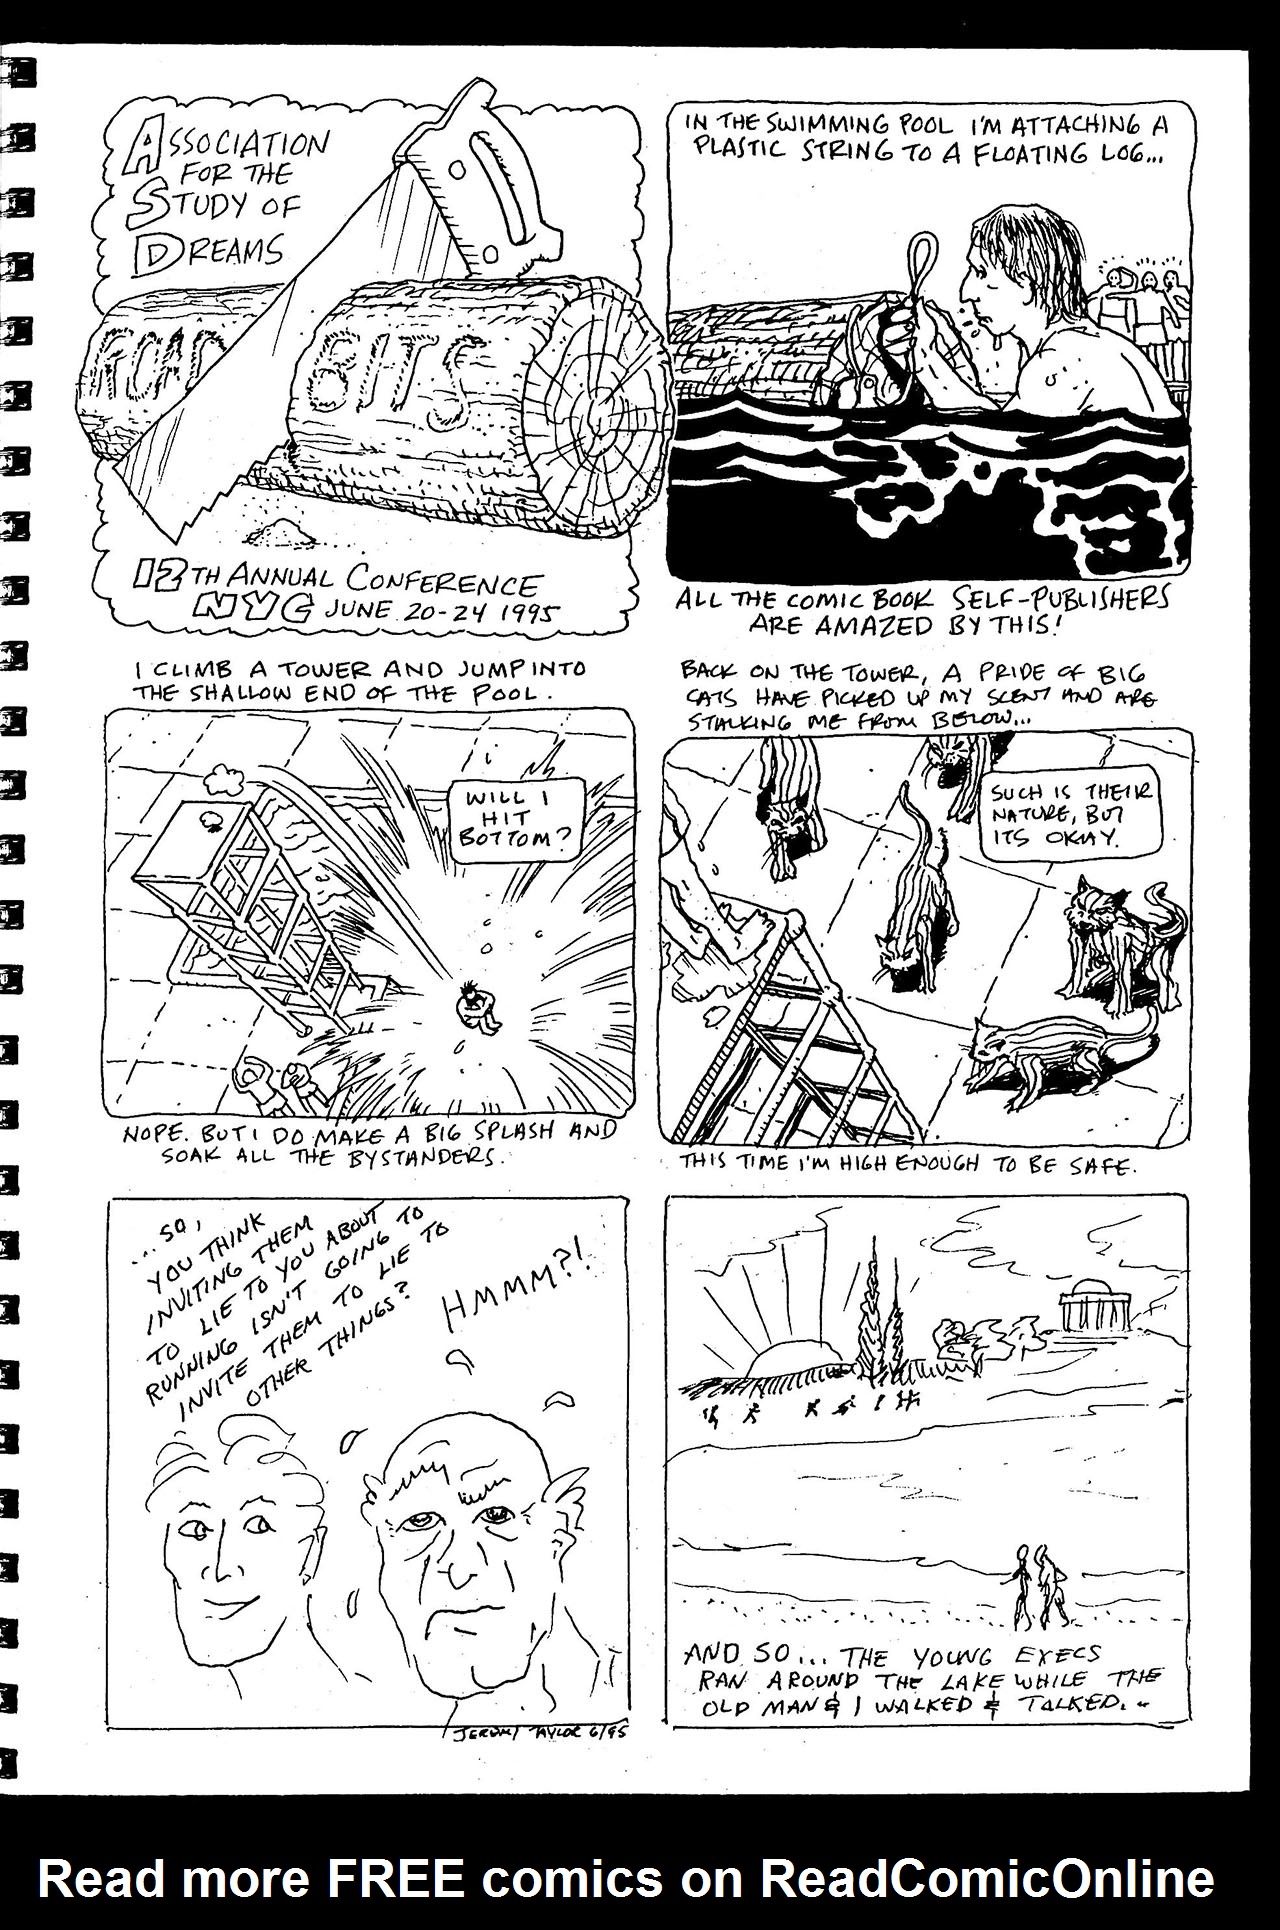 ASSOCIATION
FOR THE
STUDY OF
DREAMS
ROAD BITS
12TH ANNUAL CONFERENCE
NYC JUNE 20-24 1995
IN THE SWIMMING POOL I'M ATTACHING A
PLASTIC STRING TO A FLOATING LOG...
ALL THE COMIC BOOK SELF-PUBLISHERS
ARE AMAZED BY THIS!
I CLIMB A TOWER AND JUMP INTO
THE SHALLOW END OF THE POOL.
WILL I
HIT
BOTTOM?
NOPE. BUT I DO MAKE A BIG SPLASH AND
SOAK ALL THE BYSTANDERS.
BACK ON THE TOWER, A PRIDE OF BIG
CATS HAVE PICKED UP MY SCENT AND ARE
STALKING ME FROM BELOW...
SUCH IS THEIR
NATURE, BUT
ITS OKAY.
THIS TIME I'M HIGH ENOUGH TO BE SAFE.
...SO,
YOU THINK
INVITING THEM
TO LIE TO YOU ABOUT
RUNNING ISN'T GOING TO
INVITE THEM TO LIE TO
OTHER THINGS?
HMMM?!
JEREMY TAYLOR 6/95
AND SO... THE YOUNG EXECS
RAN AROUND THE LAKE WHILE THE
OLD MAN & I WALKED & TALKED...
Read more FREE comics on ReadComicOnline